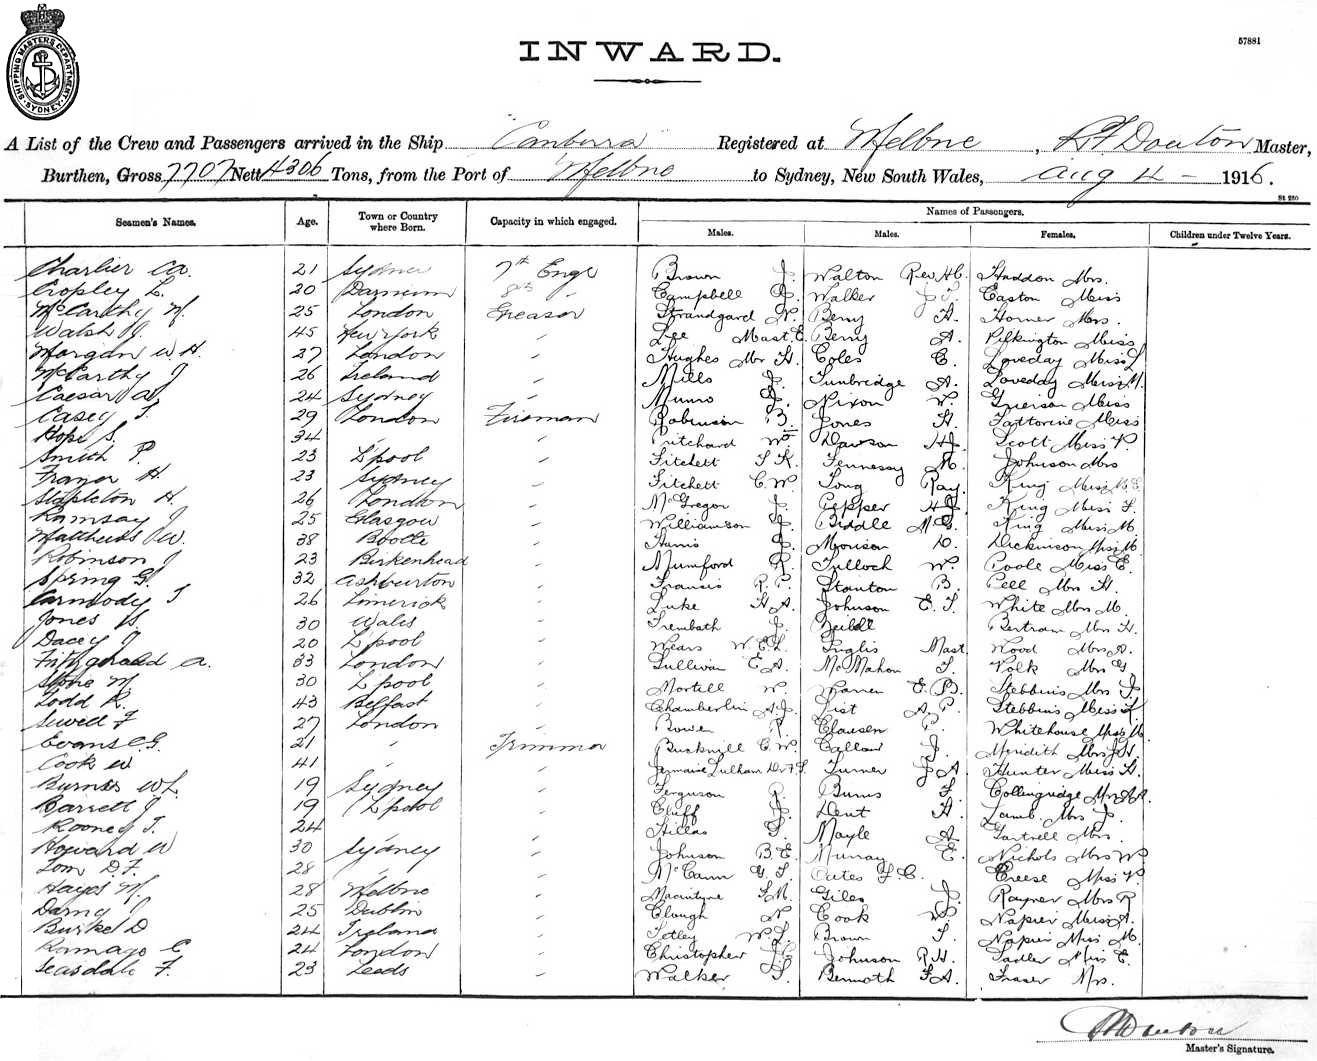 SHIPPING MASTERS DEPARTMENT SYDNEY
INWARD.
57881
A List of the Crew and Passengers arrived in the Ship "Canberra" Registered at Melbne, Master,
Burthen, Gross 7707 Nett 4306 Tons, from the Port of Melbne to Sydney, New South Wales, Aug 4 - 1916.
Seamen's Names. Age. Town or Country where Born. Capacity in which engaged. Names of Passengers.
Males. Males. Females. Children under Twelve Years.
Charlier 21 Sydney 7th Engr Brown J. Walton Rev H C. Haddon Mrs.
Cropley L. 20 8th Campbell Walker Easton Miss
McCarthy M. 25 London Greaser Strandgard N. Berry H. Horner Mrs.
Walsh J. 45 New York " Lee Mast E. Berry A. Pilkington Miss
Morgan W H. 27 London " Hughes Mr H. Coles C. Loveday Miss L
McCarthy J 26 Ireland " Mills J. Tunbridge A. Loveday Miss M.
Caesar A 24 Sydney " Munro Nixon W. Grierson Miss
Casey T 29 London Fireman Robinson B. Jones H. Tattorine Miss
Hope S. 34 " " Pritchard Wm Dawson H J. Scott Miss P.
Smith P. 23 L'pool " Fitchett T K. Fennessy M. Johnson Mrs
Frazer H. 23 Sydney " Fitchett C. W. Long Ray. King Miss
Stapleton H 26 London " McGregor J. Pepper H J. King Miss F.
Ramsay J 25 Glasgow " Williamson J. Biddle M G. King Miss M
Matthews W. 38 Bootle " Harris J. Morison D. Dickinson Miss M
Robinson J 23 Birkenhead " Mumford R. Tulloch W. Poole Miss E.
Spring G. 32 Ashburton " Francis R. P. Stanton B. Pell Mrs H.
Carmody T 26 Limerick " Luke H A. Johnson E. T. White Mrs M.
Jones 30 Wales " Trembath J. Bertram Mrs H.
Dacey J 20 L'pool " Wears W. E. L. Inglis Mast. Wood Mrs A.
Fitzgerald A. 33 London " Sullivan E. A. McMahon T. Polk Mrs G
Stone M 30 L'pool " Mortell W. Warren E. B. Stebbins Mrs J.
Todd R. 43 Belfast " Chamberlin A. J. List A. P. Stebbins Miss
Sewell F 27 London " Bower Clausen P. Whitehouse Miss
Evans C G. 21 " Trimmer Bucknill C. W. Callow J. Meridith Mrs
Cook W 41 " " Jermaine Lulham Dr F S. Turner J A. Hunter Miss H.
Burns W L. 19 Sydney " Ferguson P. Burns T. Collingridge Mrs A A.
Barrett J 19 L'pool " Cluff J. Dent H. Lamb Mrs J.
Rooney T. 24 " " Hillas T. Mayle A. Gartrell Mrs.
Howard W 30 Sydney " Johnson B. E. Murray E. Nichols Mrs W
Tom D. F. 28 " " McCann G. T. Oates F. C. Creese Miss
Hayes M. 28 Melbne " Macintyre Giles J. Rayner Mrs R
Darcy J 25 Dublin " Clough N. Cook W. Napier Miss A.
Burke D 24 Ireland " Tetley W L. Brown T. Napier Miss M.
Ramage E 24 London " Christopher Johnson R H. Sadler Miss E.
Teasdale F. 23 Leeds " Walker T. Bennoth F A. Fraser Mrs.
Master's Signature.